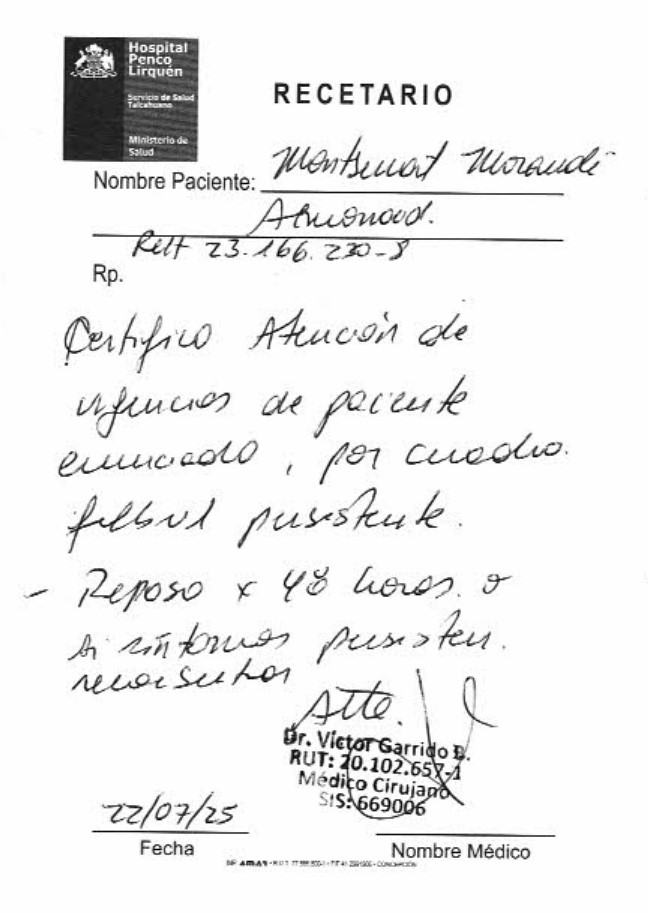 Hospital
Penco
Lirquén
Servicio de Salud
Talcahuano
Ministerio de
Salud
RECETARIO
Nombre Paciente: Montserrat Morandé
RUT 23.166.230-8
Rp.
Certifico Atención de
urgencias de paciente
enunciado, por cuadro
febril persistente.
- Reposo x 48 horas. o
si síntomas persisten.
reconsultar
Atte.
Dr. Víctor Garrido B.
RUT: 20.102.657-1
Médico Cirujano
SIS: 669006
22/07/25
Fecha
Nombre Médico